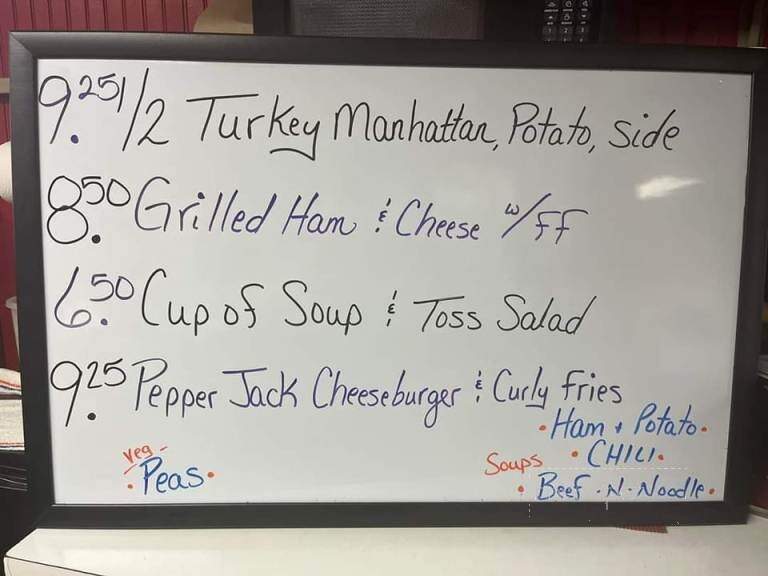 9.25 1/2 Turkey Manhattan, Potato, side
8.50 Grilled Ham & Cheese w/ff
6.50 Cup of Soup & Toss Salad
9.25 Pepper Jack Cheeseburger & Curly fries
• Ham + Potato •
veg
• Peas •
Soups • CHILI •
• Beef • N • Noodle •